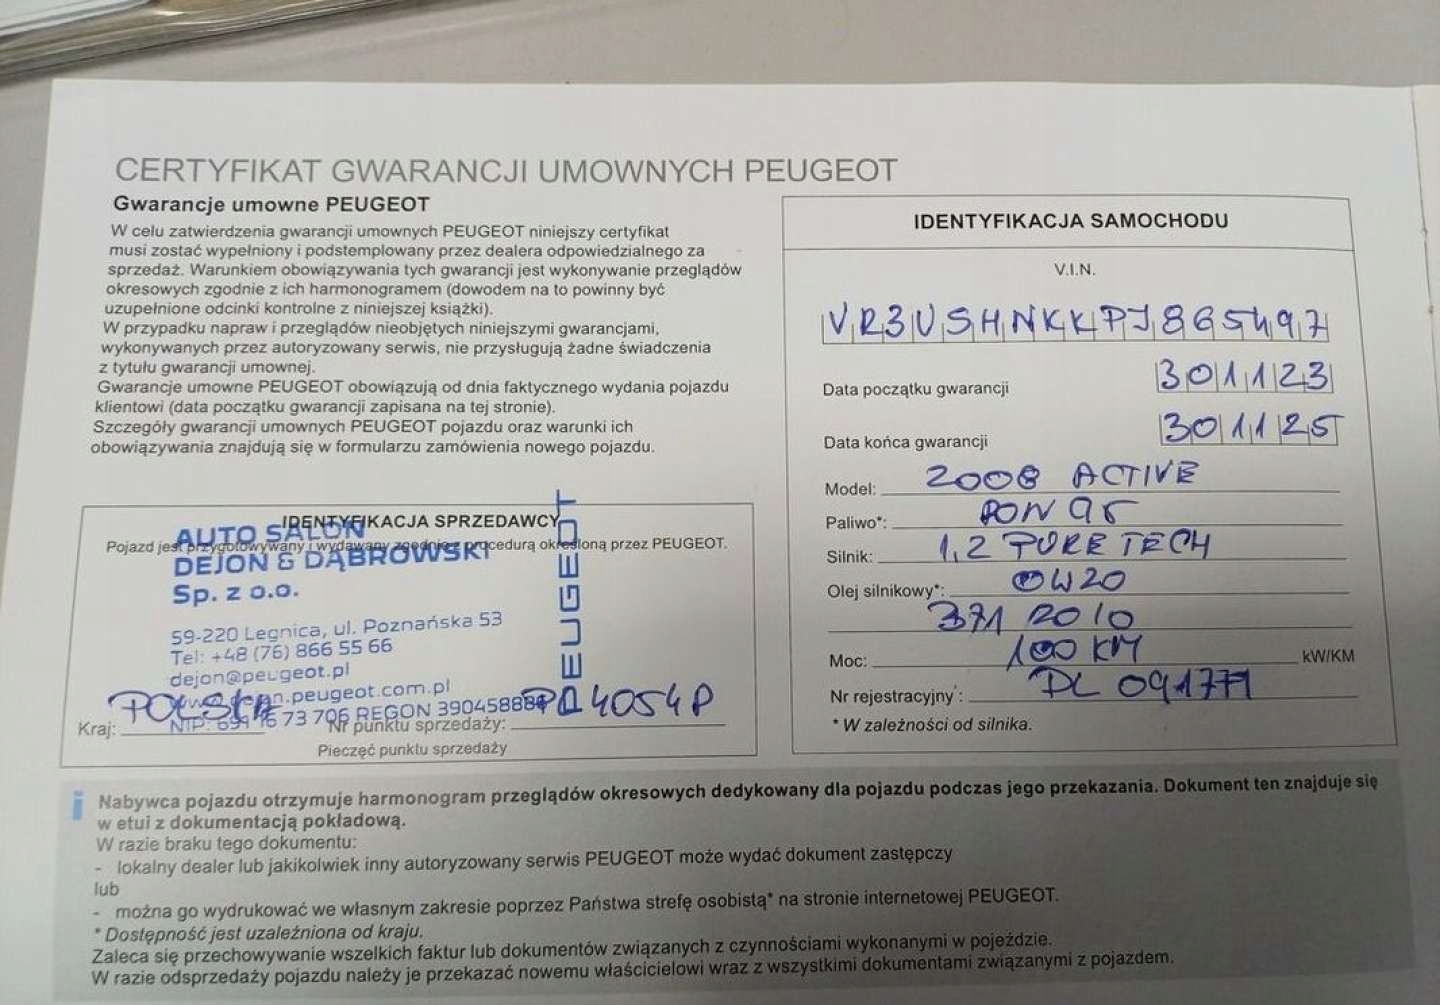 CERTYFIKAT GWARANCJI UMOWNYCH PEUGEOT
Gwarancje umowne PEUGEOT
W celu zatwierdzenia gwarancji umownych PEUGEOT niniejszy certyfikat
musi zostać wypełniony i podstemplowany przez dealera odpowiedzialnego za
sprzedaż. Warunkiem obowiązywania tych gwarancji jest wykonywanie przeglądów
okresowych zgodnie z ich harmonogramem (dowodem na to powinny być
uzupełnione odcinki kontrolne z niniejszej książki).
W przypadku napraw i przeglądów nieobjętych niniejszymi gwarancjami,
wykonywanych przez autoryzowany serwis, nie przysługują żadne świadczenia
z tytułu gwarancji umownej.
Gwarancje umowne PEUGEOT obowiązują od dnia faktycznego wydania pojazdu
klientowi (data początku gwarancji zapisana na tej stronie).
Szczegóły gwarancji umownych PEUGEOT pojazdu oraz warunki ich
obowiązywania znajdują się w formularzu zamówienia nowego pojazdu.
IDENTYFIKACJA SPRZEDAWCY
Pojazd jest przygotowywany i wydawany zgodnie z procedurą określoną przez PEUGEOT.
AUTO SALON
DEJON & DĄBROWSKI
Sp. z o.o.
59-220 Legnica, ul. Poznańska 53
Tel: +48 (76) 866 55 66
dejon@peugeot.pl
.peugeot.com.pl
73 706 REGON
PEUGEOT
Kraj: POLSKA Nr punktu sprzedaży: 4054P
Pieczęć punktu sprzedaży
IDENTYFIKACJA SAMOCHODU
V.I.N.
VR3USHNKKPJ865497
Data początku gwarancji 301123
Data końca gwarancji 301125
Model: 2008 ACTIVE
Paliwo*: PON 95
Silnik: 1,2 PURE TECH
Olej silnikowy*: 0W20
371 2010
Moc: 100 KM kW/KM
Nr rejestracyjny*: DL 0917
* W zależności od silnika.
i Nabywca pojazdu otrzymuje harmonogram przeglądów okresowych dedykowany dla pojazdu podczas jego przekazania. Dokument ten znajduje się
w etui z dokumentacją pokładową.
W razie braku tego dokumentu:
- lokalny dealer lub jakikolwiek inny autoryzowany serwis PEUGEOT może wydać dokument zastępczy
lub
- można go wydrukować we własnym zakresie poprzez Państwa strefę osobistą* na stronie internetowej PEUGEOT.
* Dostępność jest uzależniona od kraju.
Zaleca się przechowywanie wszelkich faktur lub dokumentów związanych z czynnościami wykonanymi w pojeździe.
W razie odsprzedaży pojazdu należy je przekazać nowemu właścicielowi wraz z wszystkimi dokumentami związanymi z pojazdem.